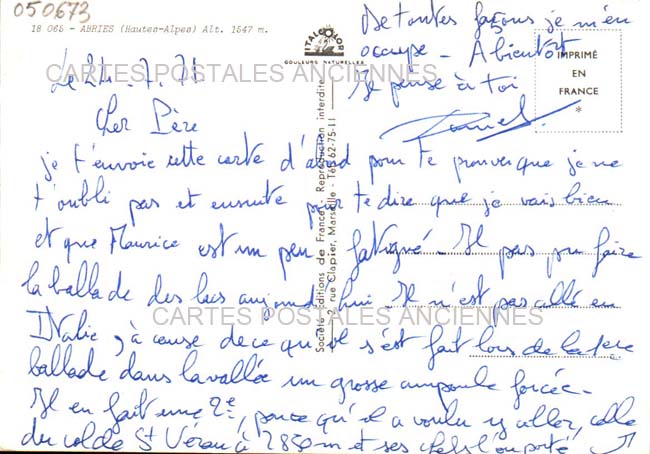 050673
18 065 - ABRIES (Hautes-Alpes) Alt. 1547 m.
ITALCOLOR
COULEURS NATURELLES
IMPRIMÉ
EN
FRANCE
*
CARTES POSTALES ANCIENNES
CARTES POSTALES ANCIENNES
Société Editions de France - Reproduction interdite
2, rue Clapier, Marseille - Tél. 62-75-11
Le 24. 7. 71
Cher Père
je t'envoie cette carte d'abord pour te prouver que je ne
t'oubli pas et ensuite pour te dire que je vais bien
et que Maurice est un peu fatigué - Il pas pu faire
la ballade des lacs aujourd'hui - Il n'est pas allé en
Italie, à cause de ce qu'il s'est fait lors de la 1ère
ballade dans la vallée un grosse ampoule forcée -
Il en fait une 2e, parce qu'il a voulu y aller, celle
du col de St Véran à 2850 m et ses l'on porté
De toutes façons je m'en
occupe - A bientôt
Je pense à toi